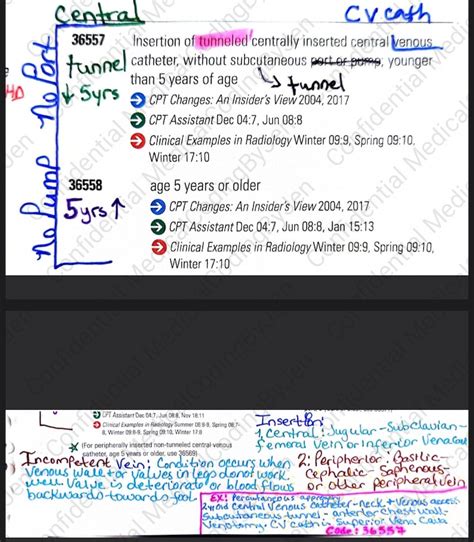 Central CV cath
36557 Insertion of tunneled centrally inserted central venous
catheter, without subcutaneous port or pump, younger
than 5 years of age
tunnel
↓ 5yrs
→ tunnel
No Port
No Pump
CPT Changes: An Insider's View 2004, 2017
CPT Assistant Dec 04:7, Jun 08:8
Clinical Examples in Radiology Winter 09:9, Spring 09:10,
Winter 17:10
36558 age 5 years or older
5yrs ↑
CPT Changes: An Insider's View 2004, 2017
CPT Assistant Dec 04:7, Jun 08:8, Jan 15:13
Clinical Examples in Radiology Winter 09:9, Spring 09:10,
Winter 17:10
CPT Assistant Dec 04:7, Jun 08:8, Nov 18:11
Clinical Examples in Radiology Summer 08:
Winter 09:8-9, Spring 09:10, Winter 17:8
(For peripherally inserted non-tunneled central venous
catheter, age 5 years or older, use 36569)
Incompetent Vein: Condition occurs when
Venous wall or valves in legs do not work
well. Valve is deteriorate or blood flows
backwards towards foot.
Insertion:
1 Central: Jugular - Subclavian -
femoral vein or Inferior Vena Cava
2: Peripheral: Basilic -
Cephalic - Saphenous
or other peripheral vein
EX: Percutaneous approach
Central Venous Catheter - neck + Venous access
Subcutaneous tunnel - anterior chest wall -
Venotomy. CV cath in Superior Vena Cava
Code: 36557